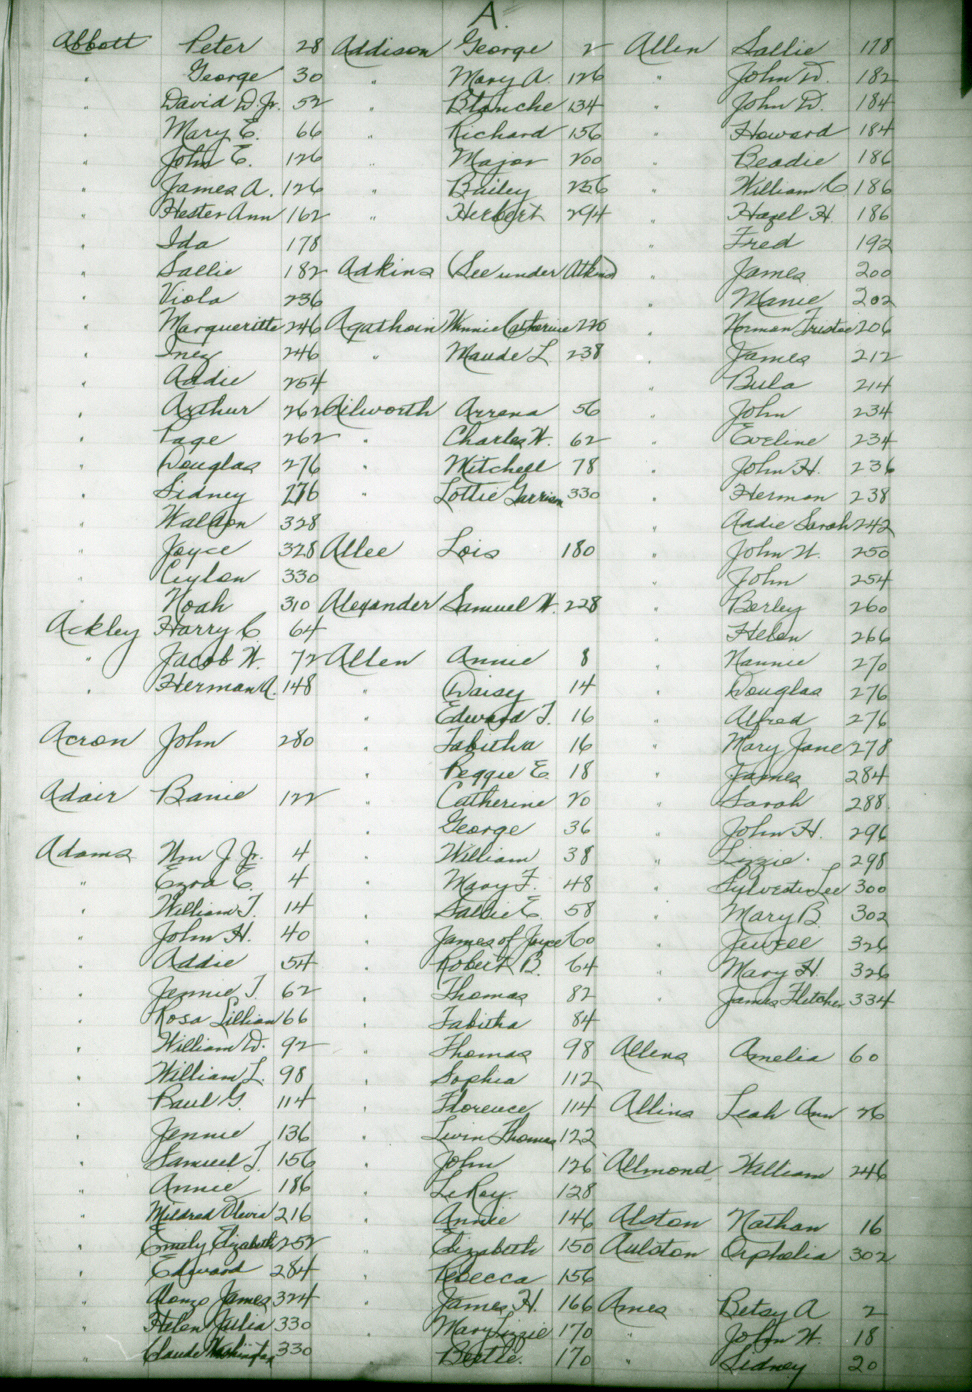 A.
Abbott Peter 28
" George 30
" David D. Jr. 52
" Mary E. 66
" John E. 126
" James A. 126
" Hester Ann 162
" Ida 178
" Sallie 182
" Viola 236
" Margueritte 246
" Inez 246
" Addie 254
" Arthur 262
" Page 262
" Douglas 276
" Sidney 276
" Walton 328
" Joyce 328
" Ceylon 330
" Noah 310
Ackley Harry C. 64
" Jacob W. 72
" Herman A. 148
Acron John 280
Adair Banie 122
Adams Wm J. Jr. 4
" Ezra E. 4
" William T. 14
" John H. 40
" Addie 54
" Jennie T. 62
" Rosa Lillian 66
" William W. 92
" William L. 98
" Paul G. 114
" Jennie 136
" Samuel T. 156
" Annie 186
" Mildred Olevia 216
" Emely Elizabeth 252
" Edward 284
" Alonzo James 324
" Helen Julia 330
" Claude Washington 330
Addison George 2
" Mary A. 126
" Blanche 134
" Richard 156
" Major 200
" Bailey 256
" Herbert 294
Adkins (See under Atkins)
Agathoin Winnie Catherine 220
" Maude L 238
Ailworth Arrena 56
" Charles W. 62
" Mitchell 78
" Lottie Garrison 330
Allee Lois 180
Alexander Samuel W. 228
Allen Annie 8
" Daisy 14
" Edward T. 16
" Tabitha 16
" Peggie E 18
" Catherine 20
" George 36
" William 38
" Mary F. 48
" Sallie E. 58
" James of Joyce 60
" Robert B. 64
" Thomas 82
" Tabitha 84
" Thomas 98
" Sophia 112
" Florence 114
" Levin Thomas 122
" John 126
" LeRoy 128
" Annie 146
" Elizabeth 150
" Rebecca 156
" James H. 166
" Mary Lizzie 170
" Bertie. 170
Allen Sallie 178
" John D. 182
" John D. 184
" Howard 184
" Beadie 186
" William C 186
" Hazel H. 186
" Fred 192
" James 200
" Manie 202
" Norman 206
" James 212
" Bula 214
" John 234
" Eveline 234
" John H. 236
" Herman 238
" Addie Sarah 242
" John W. 250
" John 254
" Berley 260
" Helen 266
" Nannie 270
" Douglas 276
" Alfred 276
" Mary Jane 278
" James 284
" Sarah 288
" John H. 296
" Lizzie. 298
" Sylvester Lee 300
" Mary B. 302
" Jewell 326
" Mary H. 326
" James Fletcher 334
Allens Amelia 60
Allins Leah Ann 26
Allmond William 246
Alston Nathan 16
Aulston Orphelia 302
Ames Betsy A 2
" John W. 18
" Sidney 20